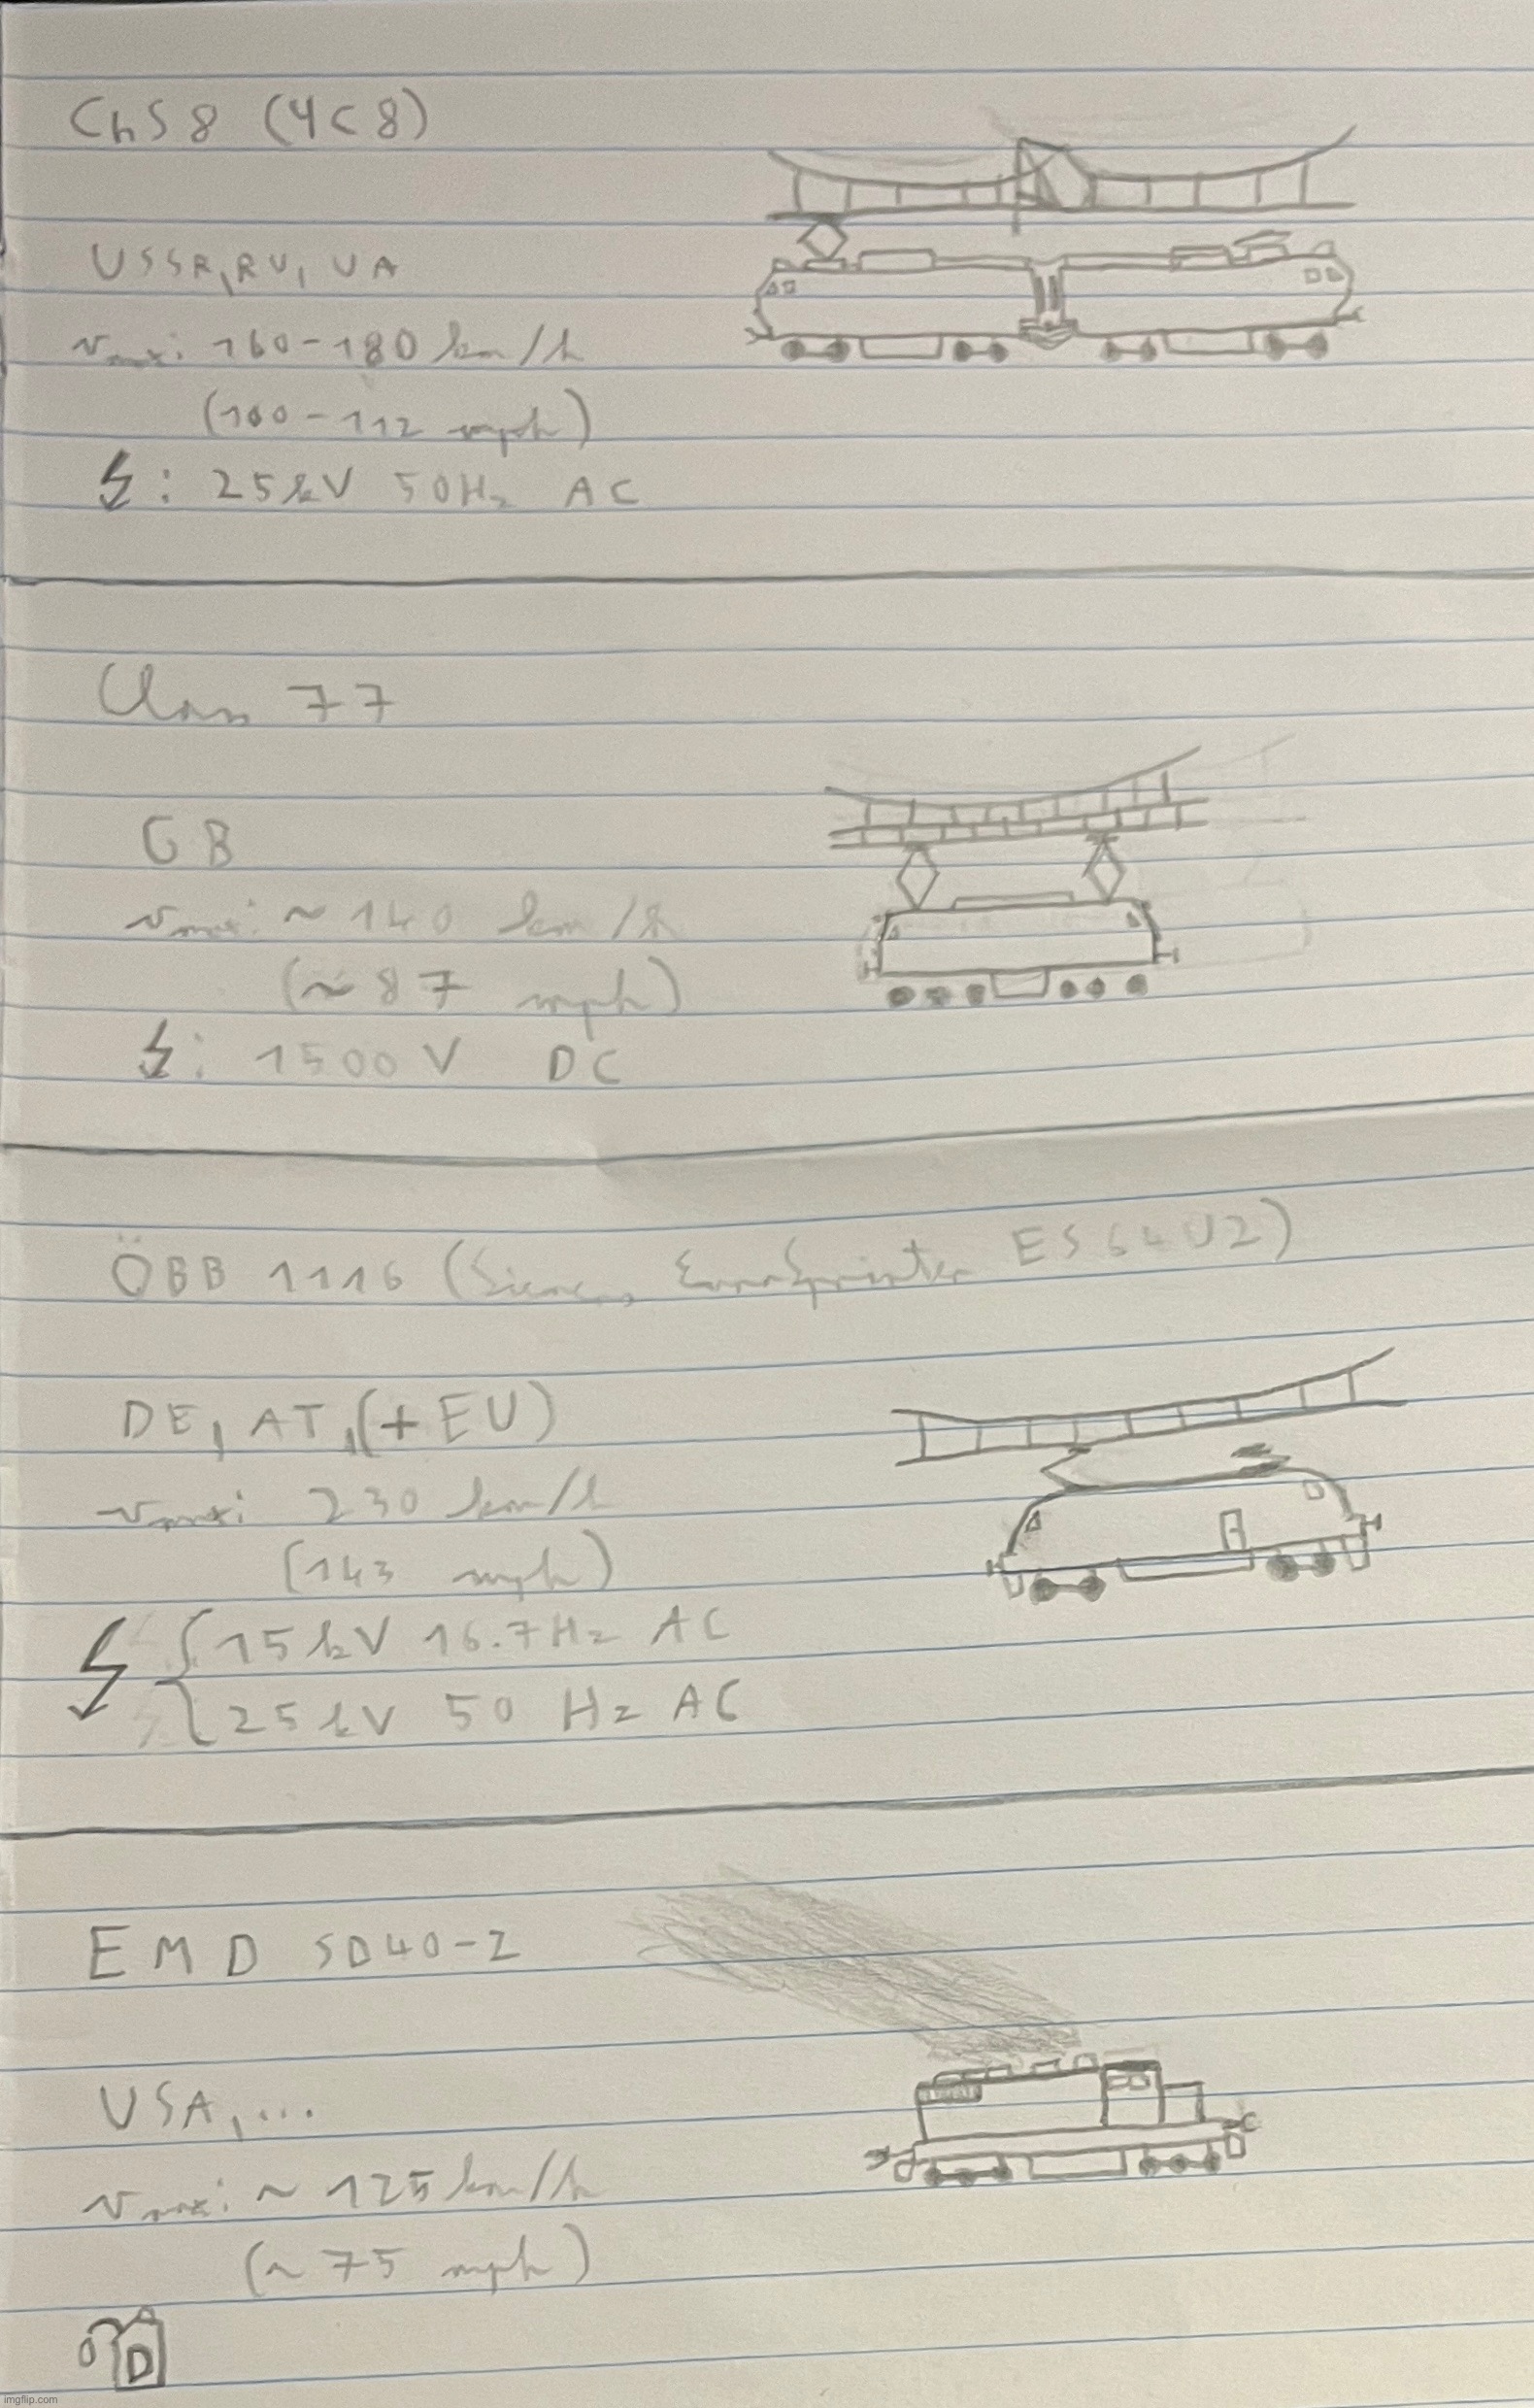 ChS8 (ЧС8)
USSR, RU, UA
vmax: 160-180 km/h
(100-112 mph)
: 25kV 50Hz AC
Class 77
GB
vmax: ~140 km/h
(~87 mph)
: 1500 V DC
ÖBB 1116 (Siemens EuroSprinter ES64U2)
DE, AT, (+EU)
vmax: 230 km/h
(143 mph)
15kV 16.7Hz AC
25kV 50 Hz AC
EMD SD40-2
USA, ...
vmax: ~125km/h
(~75 mph)
D
imgflip.com